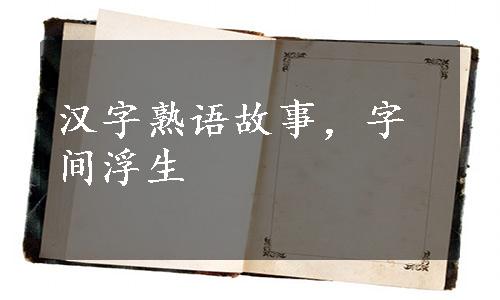 汉字熟语故事，字
间浮生